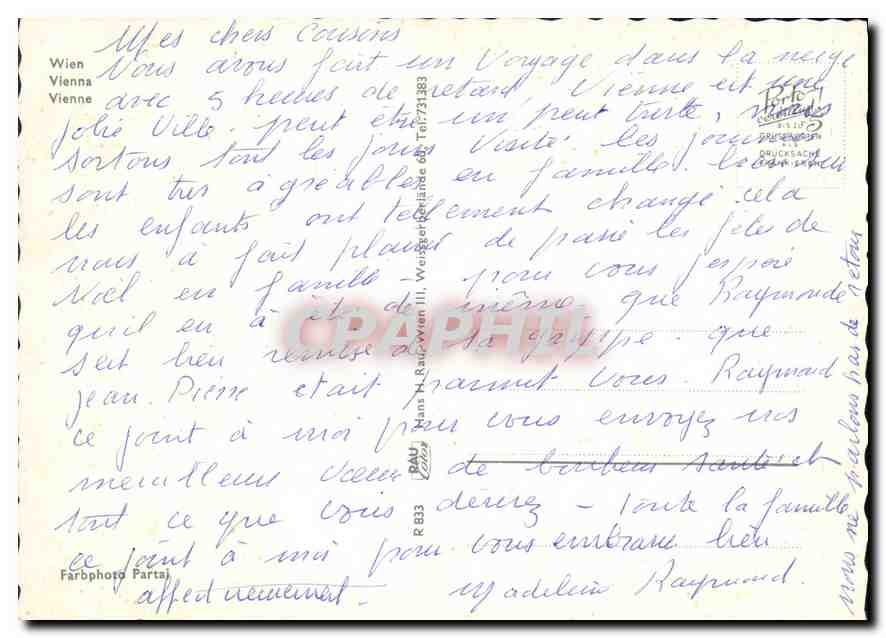 Mes chers Cousins
Wien
Vienna
Vienne
Nous avons fait un Voyage dans la neige
avec 5 heures de retard, Vienne est une
jolie Ville. peut etre un peut triste, nous
sortons tout les jours Visite. les journees
sont tres agréables en famille.
les enfants ont tellement change cela
nous à fait plaisir de passé les fetes de
Noël en famille - pour vous j'espere
qu'il en à été de même que Raymonde
seit bien remise de la grippe que
Jean. Pierre etait parmit Vous. Raymond
ce joint à moi pour vous envoyez nos
merveilleux Vœux de bonheur santé et
tout ce que vous désirez - Toute la famille
ce joint à moi pour vous embrasse bien
affectueusement - Madeleine Raymond.
nous ne parlons pas de retour
Farbphoto Partaj
R 833
RAU
Color
Hans H. Rau, Wien III, Weissgerberlände 60, Tel. 731383
Porto
DRUCKSACHE
CPAPHIL